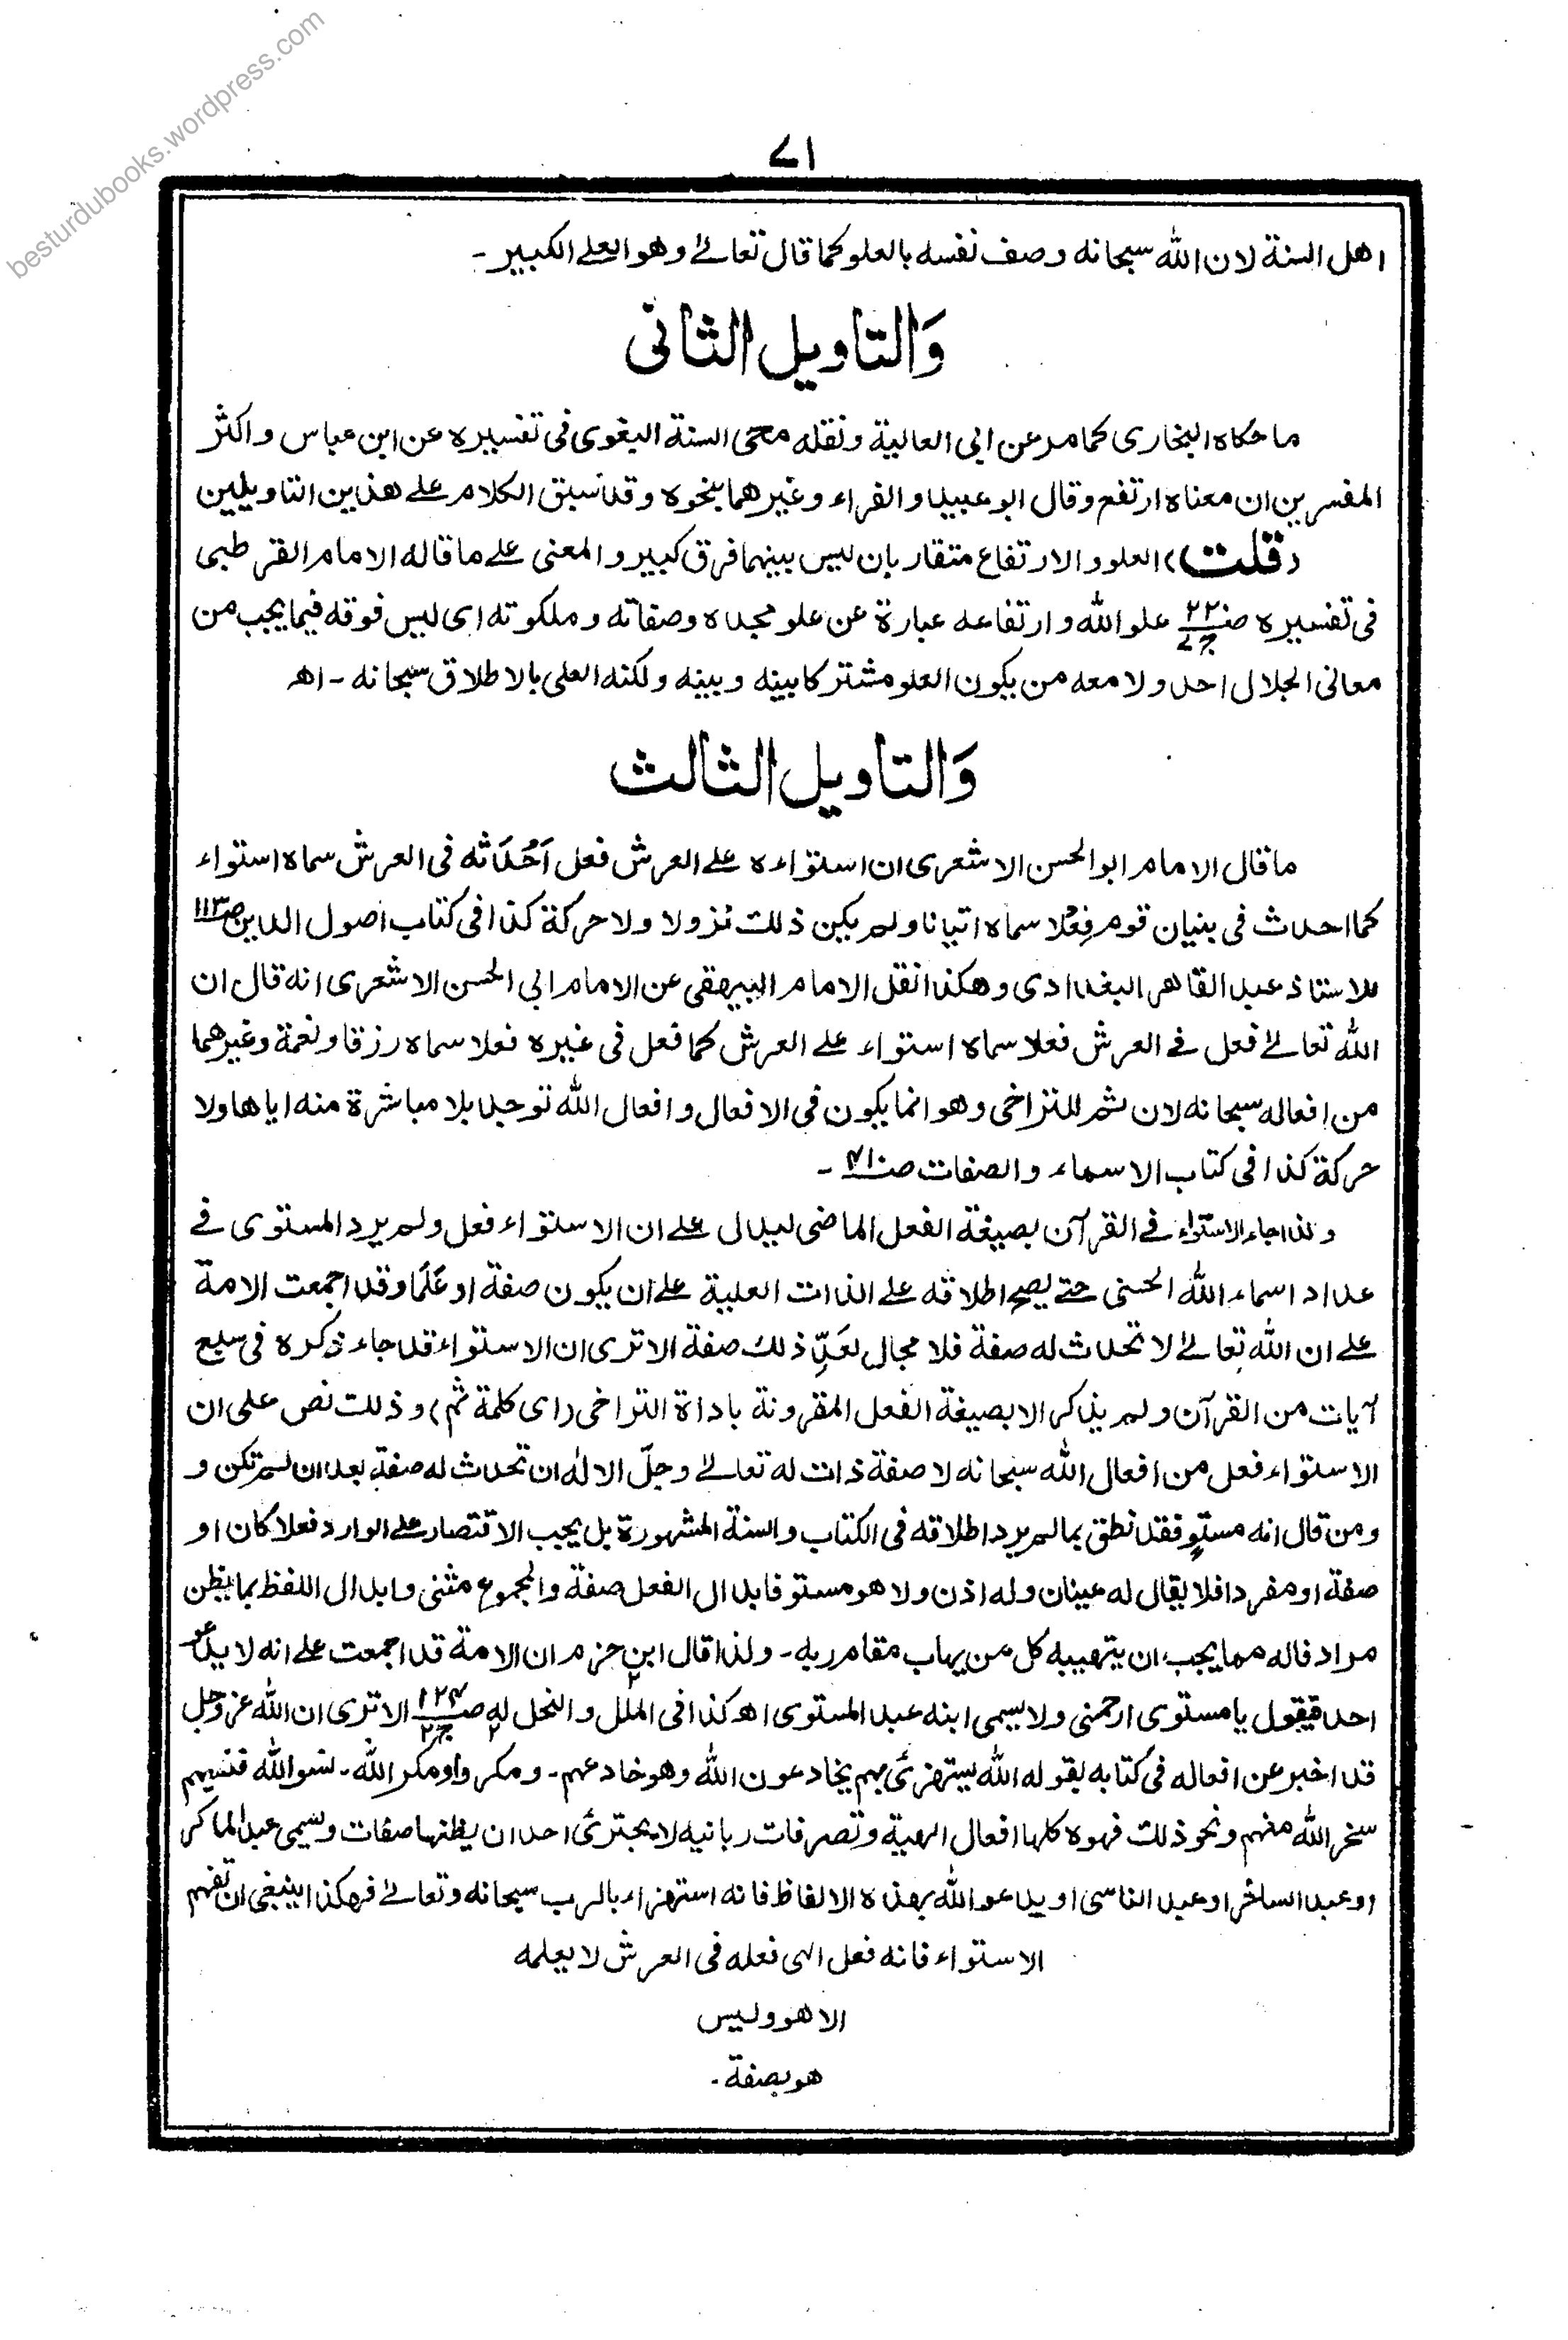 besturdubooks.wordpress.com
۷۱
اهل السنة لان الله سبحانه وصف نفسه بالعلو كما قال تعالىٰ وهو العلى الكبير-
وَالتاويل الثانى
ما حكاه البخارى كما مر عن ابى العالية ونقله محى السنة البغوى فى تفسيره عن ابن عباس واكثر
المفسرين ان معناه ارتفع وقال ابو عبيد والفراء وغيرهما بنحوه وقد سبق الكلام على هذين التاويلين
(قلت) العلو والارتفاع متقاربان ليس بينهما فرق كبير والمعنى على ما قاله الامام القرطبى
فى تفسيره صـ۲۲۰ ج۷ علو الله وارتفاعه عبارة عن علو مجده وصفاته وملكوته اى ليس فوقه فيما يجب من
معانى الجلال احد ولا معه من يكون العلو مشتركا بينه وبينه ولكنه العلى بالاطلاق سبحانه - اهـ
وَالتاويل الثالث
ما قال الامام ابو الحسن الاشعرى ان استواءه على العرش فعل اَحْدَثه فى العرش سماه استواء
كما احدث فى بنيان قوم فِعْلا سماه اتيانا ولم يكن ذلك نزولا ولا حركة كذا فى كتاب اصول الدين صـ۱۱۳
للاستاذ عبد القاهر البغدادى وهكذا نقل الامام البيهقى عن الامام ابى الحسن الاشعرى انه قال ان
الله تعالىٰ فعل فى العرش فعلا سماه استواء على العرش كما فعل فى غيره فعلا سماه رزقا ونعمة وغيرهما
من افعاله سبحانه لان ثم للتراخى وهو انما يكون فى الافعال وافعال الله توجد بلا مباشرة منه اياها ولا
حركة كذا فى كتاب الاسماء والصفات صـ۴۱۰ -
ولذا جاء الاستواء فى القرآن بصيغة الفعل الماضى ليدل على ان الاستواء فعل ولم يرد المستوى فى
عداد اسماء الله الحسنى حتى يصح اطلاقه على الذات العلية على ان يكون صفة او عَلَما وقد اجمعت الامة
على ان الله تعالىٰ لا تحدث له صفة فلا مجال لعَدِّ ذلك صفة الا ترى ان الاستواء قد جاء ذكره فى سبع
آيات من القرآن ولم يذكر الا بصيغة الفعل المقرونة باداة التراخى (اى كلمة ثم) وذلك نص على ان
الاستواء فعل من افعال الله سبحانه لا صفة ذات له تعالىٰ وجلّ الالٰه ان تحدث له صفة بعد ان لم تكن و
ومن قال انه مستوٍ فقد نطق بما لم يرد اطلاقه فى الكتاب والسنة المشهورة بل يجب الاقتصار على الوارد فعلا كان او
صفة او مفردا فلا يقال له عينان وله اذن ولا هو مستو فابدال الفعل صفة والمجموع مثنى وابدال اللفظ بما يظن
مرادفا له مما يجب ان يتهيبه كل من يهاب مقام ربه - ولذا قال ابن حزم ان الامة قد اجمعت على انه لا يدعو
احد فيقول يا مستوى ارحمنى ولا يسمى ابنه عبد المستوى اهـ كذا فى الملل والنحل له صـ۱۲۴ ج۲ الا ترى ان الله عز وجل
قد اخبر عن افعاله فى كتابه بقوله الله يستهزئ بهم يخادعون الله وهو خادعهم - ومكروا ومكر الله - نسوا الله فنسيهم
سخر الله منهم ونحو ذلك فهوه كلها افعال الهية وتصرفات ربانيه لا يجترئ احد ان يظنها صفات ويسمى عبد الماكر
او عبد الساخر او عبد الناسى او يدعو الله بهذه الالفاظ فانه استهزاء بالرب سبحانه وتعالىٰ فهكذا ينبغى ان تفهم
الاستواء فانه فعل الٰهى فعله فى العرش لا يعلمه
الا هو وليس
هو بصفة -